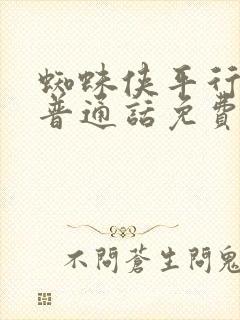 蜘蛛俠平行
普通話免費
不問蒼生問鬼